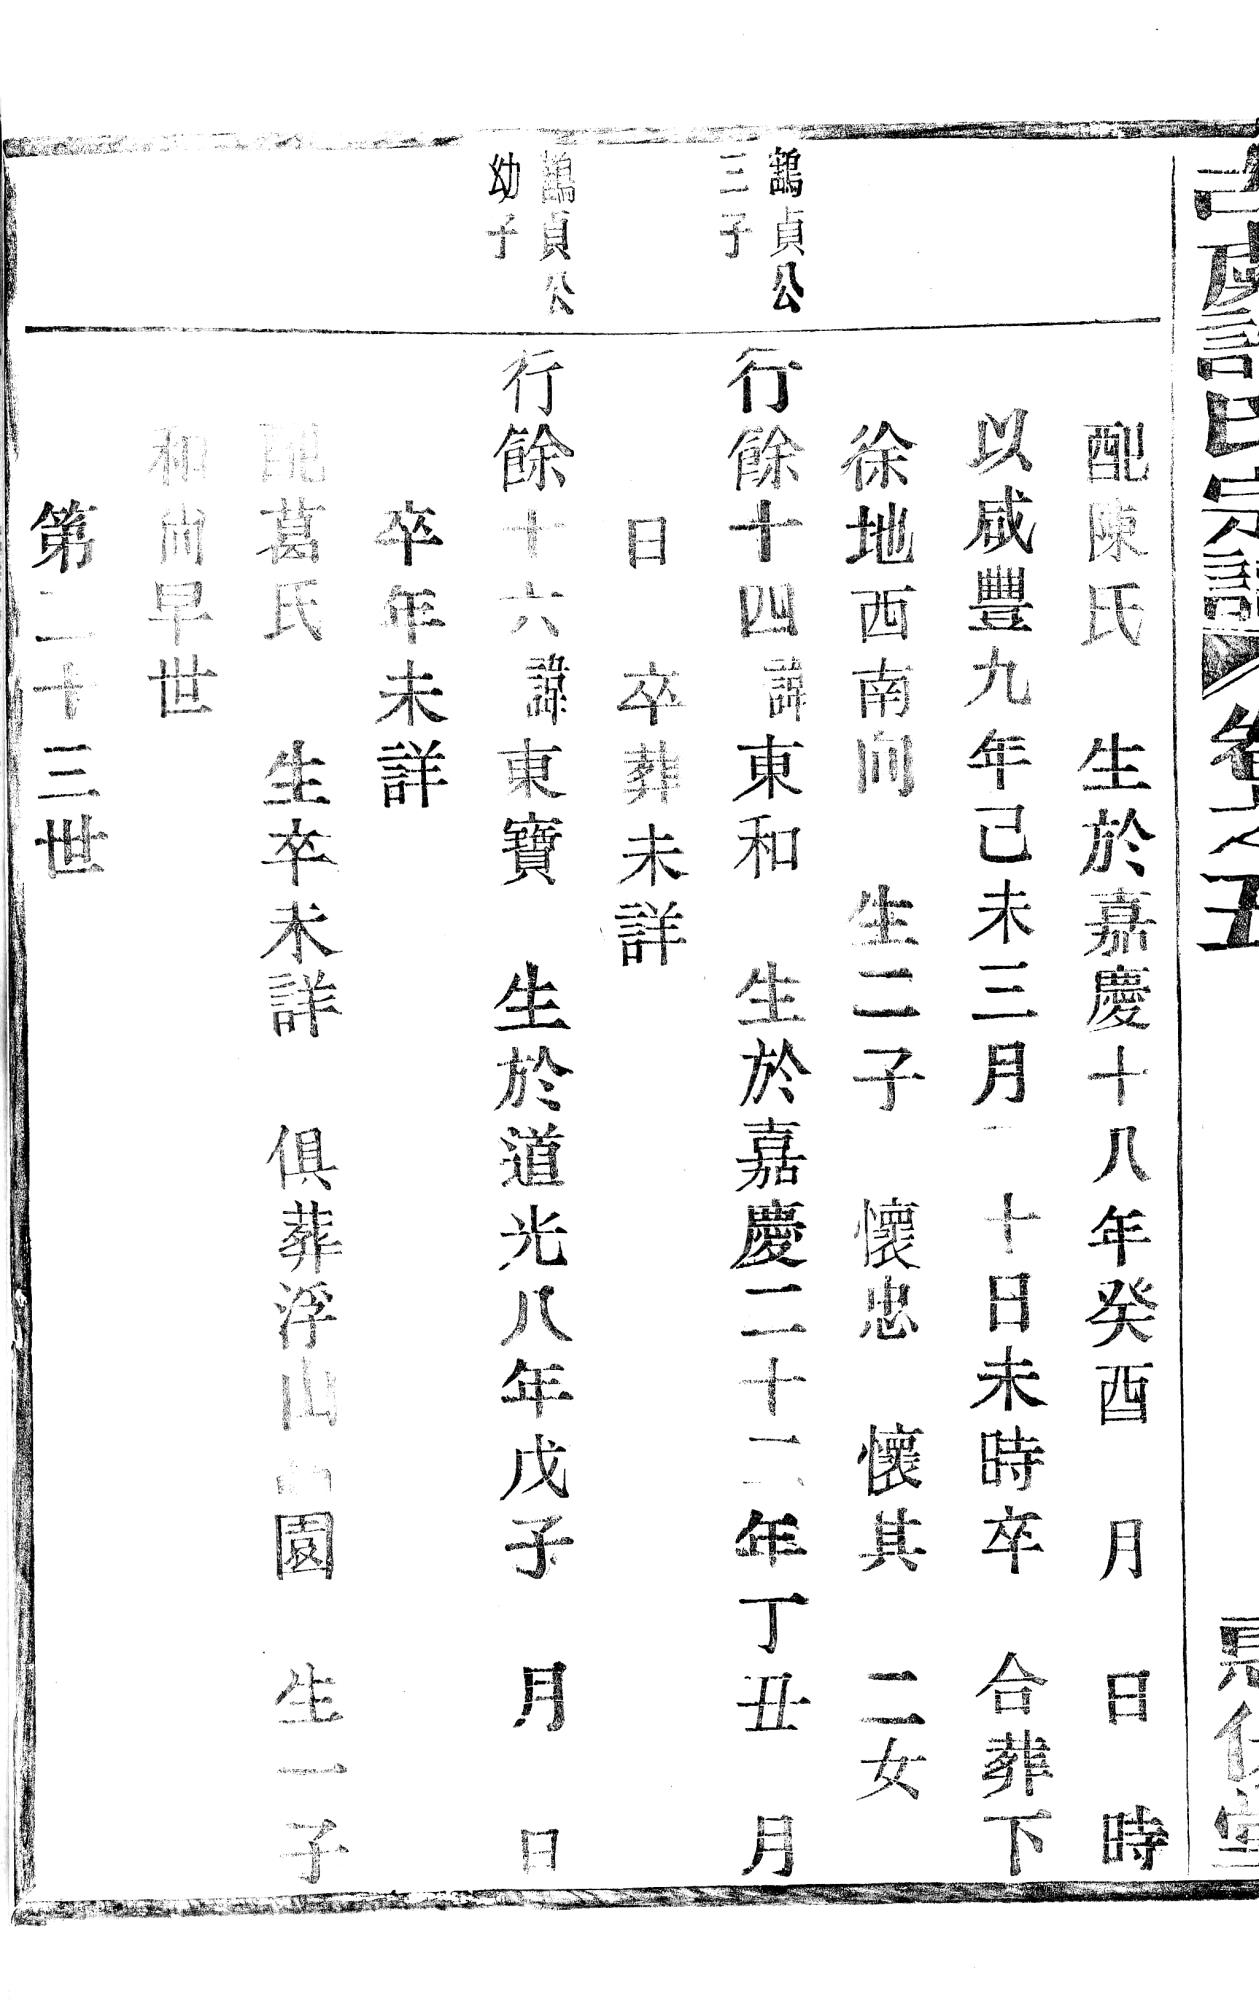 古虞許氏宗譜 卷之五 堂
配陳氏 生於嘉慶十八年癸酉 月 日 時
以咸豐九年己未三月 十日未時卒 合葬下
徐地西南向 生二子 懷忠 懷其 二女
貞公
三子
行餘十四諱東和 生於嘉慶二十二年丁丑 月
日 卒葬未詳
貞公
幼子
行餘十六諱東寶 生於道光八年戊子 月 日
卒年未詳
配葛氏 生卒未詳 俱葬浮山 園 生一子
和尚早世
第二十三世